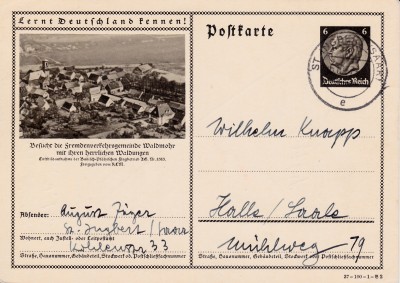 Lernt Deutschland kennen!
Besucht die Fremdenverkehrsgemeinde Waldmohr
mit ihren herrlichen Waldungen
Absender: August Jäger
St. Ingbert/Saar
Wohnort, auch Zustell- oder Leitpostamt
Kohlenstr 33
Straße, Hausnummer, Gebäudeteil, Stockwerk od. Postschließfachnummer
Postkarte
6 6
Deutsches Reich
ST. INGBERT (SAAR)
e
Wilhelm Knapp
Halle/Saale
Mühlweg 79
Straße, Hausnummer, Gebäudeteil, Stockwerk od. Postschließfachnummer
37-100-1-B2